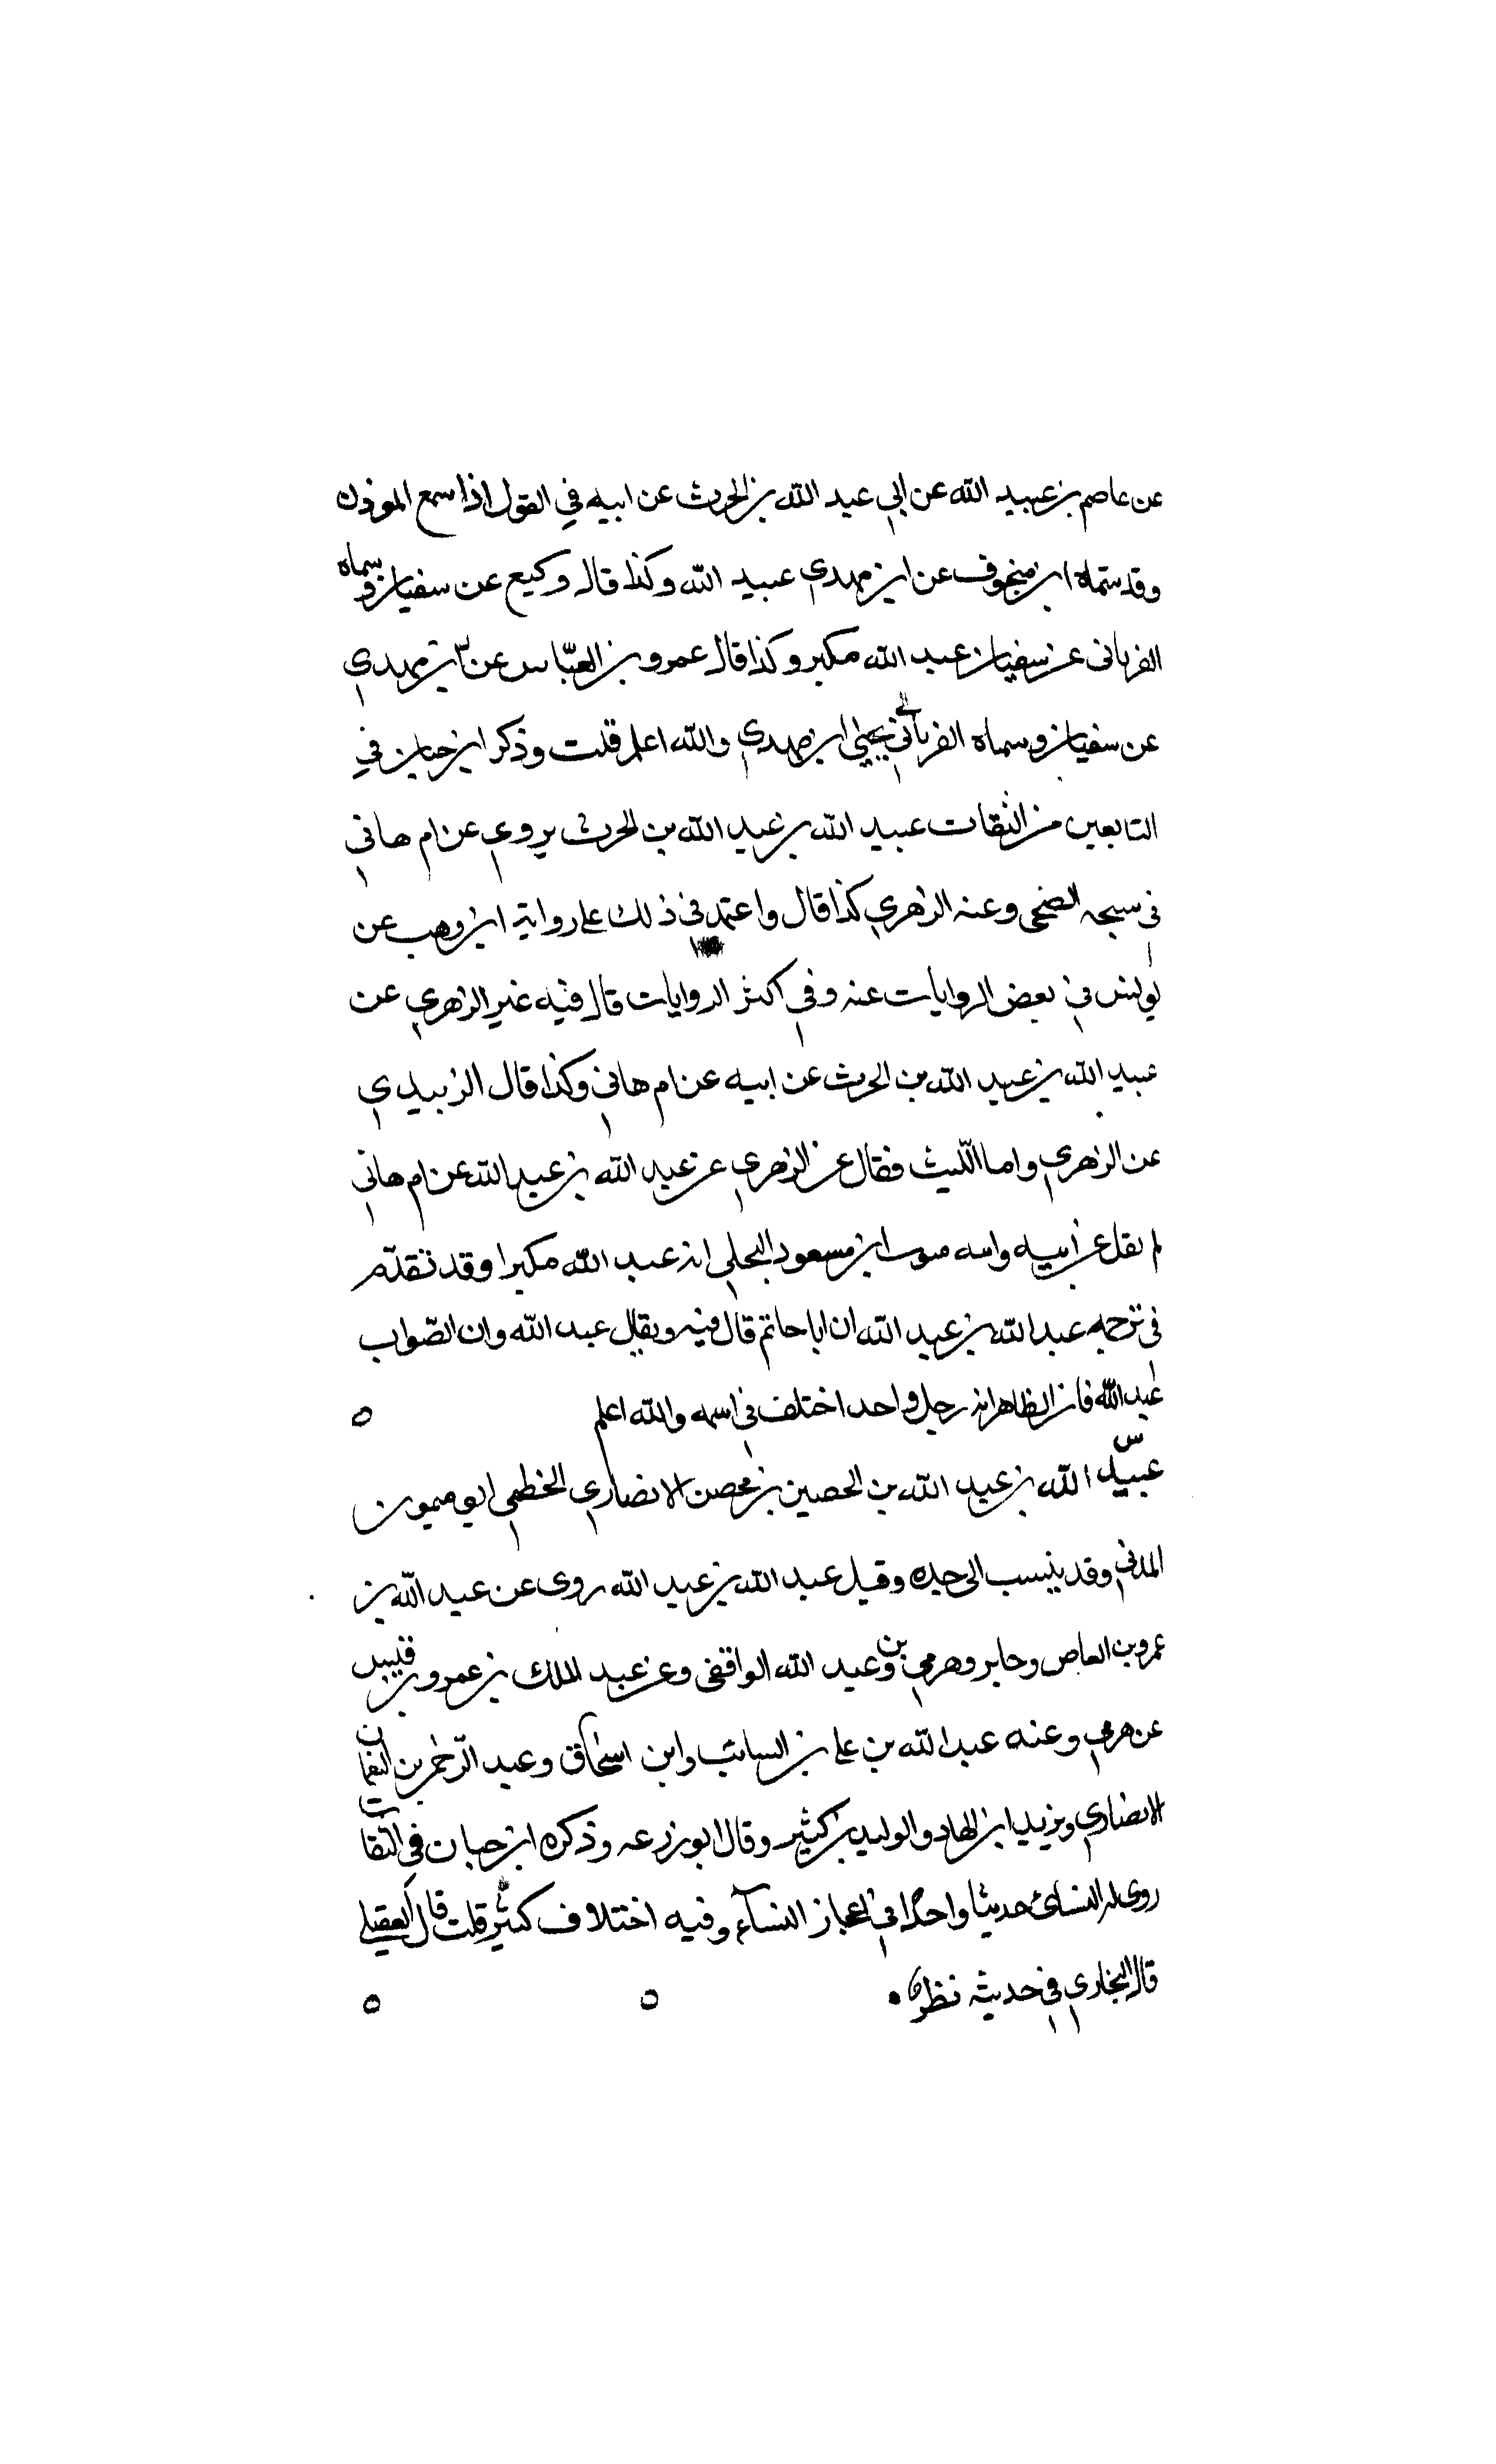 عن عاصم بن عبيد الله عن ابي عبد الله بن الحرث عن ابيه في القول اذا سمع الموذن
وقد سماه ابن منجوف عن ابن مهدي عبيد الله وكذا قال وكيع عن سفيان وسماه
الفريابي عن سفيان عبد الله مكبر وكذا قال عمرو بن العباس عن ابن مهدي
عن سفيان وسماه الفريابي يحيى ابن مهدي والله اعلم قلت وذكر ابن حبان في
التابعين من الثقات عبيد الله بن عبد الله بن الحرث يروي عن ام هاني
في سبحه الضحى وعنه الزهري كذا قال واعتمد في ذلك على رواية ابن وهب عن
يونس في بعض الروايات عنه وفي اكثر الروايات قال فيه عنه الزهري عن
عبيد الله بن عبد الله بن الحرث عن ابيه عن ام هاني وكذا قال الزبيدي
عن الزهري واما الليث فقال عن الزهري عن عبد الله بن عبد الله عن ام هاني
لم يقل عن ابيه واسه ابن مسعود البجلي انه عبد الله مكبرا وقد تقدم
في ترجمه عبد الله بن عبد الله ان ابا حاتم قال فيه ويقال عبد الله وان الصواب
عبد الله فان الظاهر انه رجل واحد اختلف في اسمه والله اعلم
س
عبيد الله بن عبد الله بن الحصين بن محصن الانصاري الخطمي ابو ميمون
المدني وقد ينسب الى جده وقيل عبد الله بن عبد الله روى عن عبد الله بن
عمرو بن العاص وجابر وهرمي بن وعبد الله الواقفي وعن عبد الملك بن عمرو بن قيس
عن هرمي وعنه عبد الله بن علي بن السائب وابن اسحاق وعبد الرحمن بن النعمان
الانصاري ويزيد ابن الهاد والوليد بن كثير وقال ابو زرعه وذكره ابن حبان في الثقات
روى له النسائ حديثا واحدا في اعجاز النسآء وفيه اختلاف كثير قلت قال العقيلي
قال البخاري في حديثه نظر